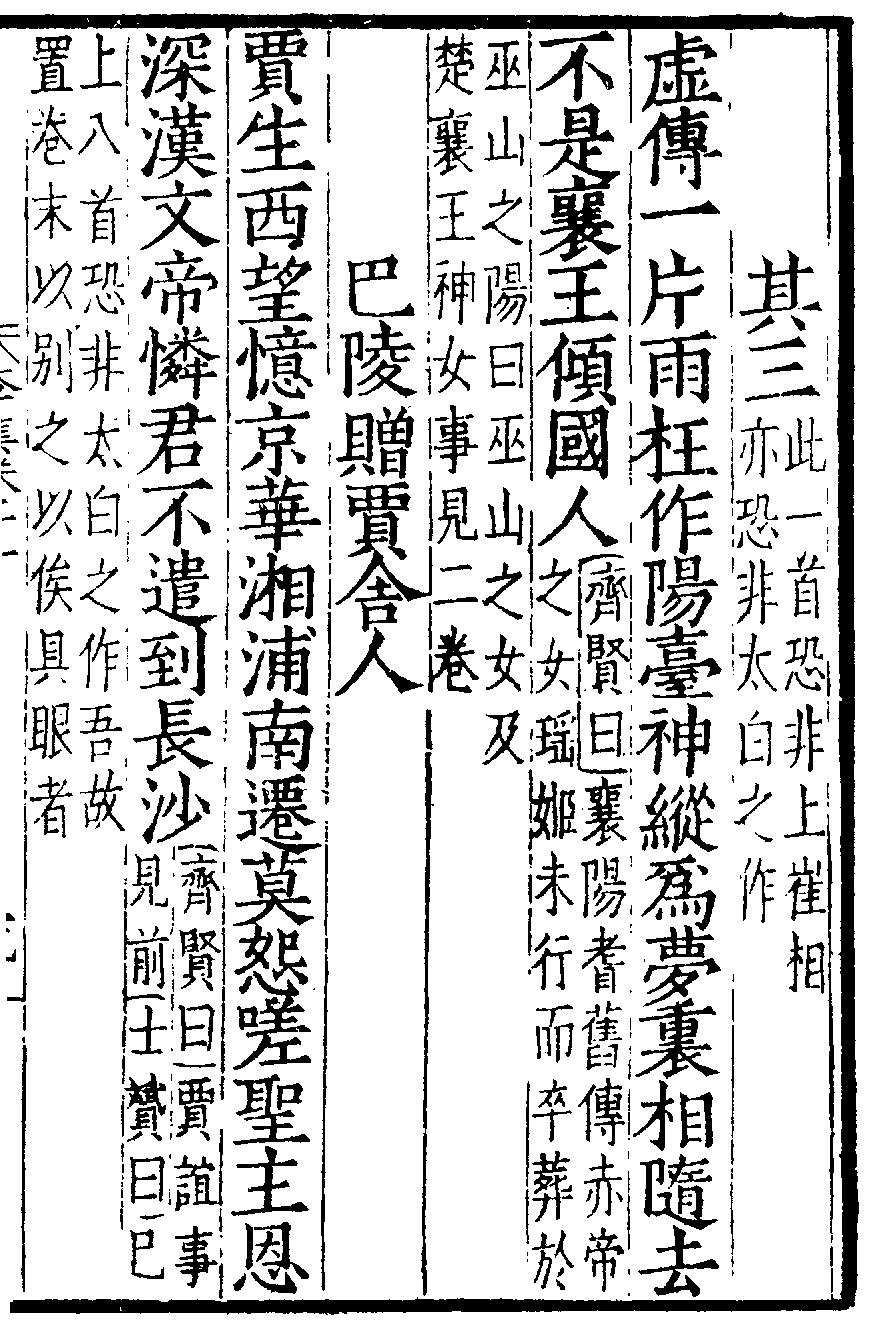 其三
此一首恐非上崔相
亦恐非太白之作
虛傳一片雨枉作陽臺神縱爲夢裏相隨去
不是襄王傾國人
齊賢曰襄陽耆舊傳赤帝
之女瑶姬未行而卒葬於
巫山之陽曰巫山之女及
楚襄王神女事見二巻
巴陵贈賈舎人
賈生西望憶京華湘浦南遷莫怨嗟聖主恩
深漢文帝憐君不遣到長沙
齊賢曰賈誼事
見前士贇曰已
上八首恐非太白之作吾故
置巻末以别之以俟具眼者